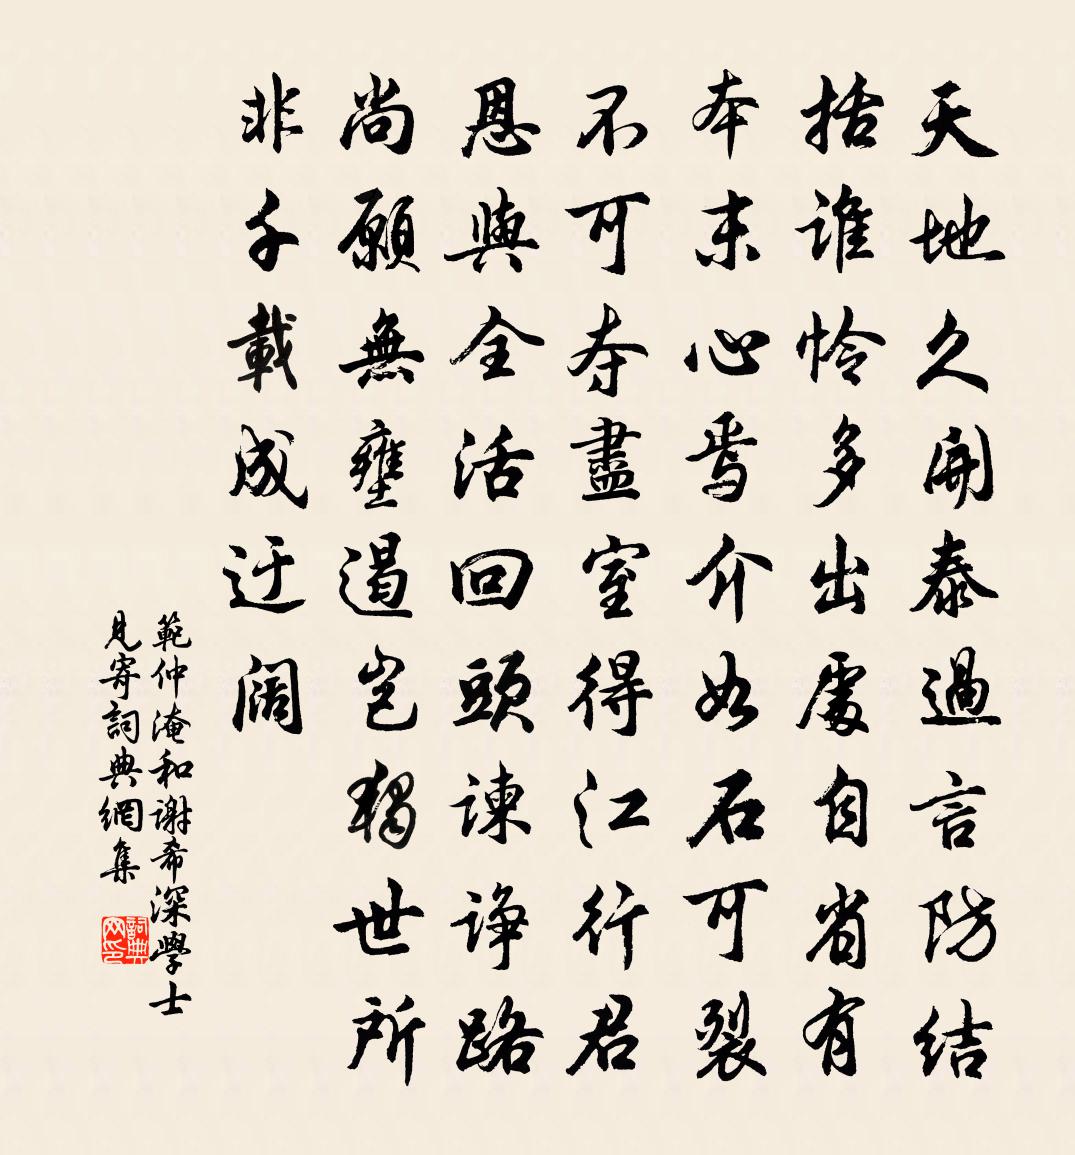 天地久開泰過言防結
括誰怜多出處自省有
本末心焉介如石可裂
不可夺盡室得江行君
恩與全活回頭諫諍路
尚願無壅遏豈獨世所
非千載成迂阔
範仲淹和谢希深學士
見寄詞典網集
詞典网印